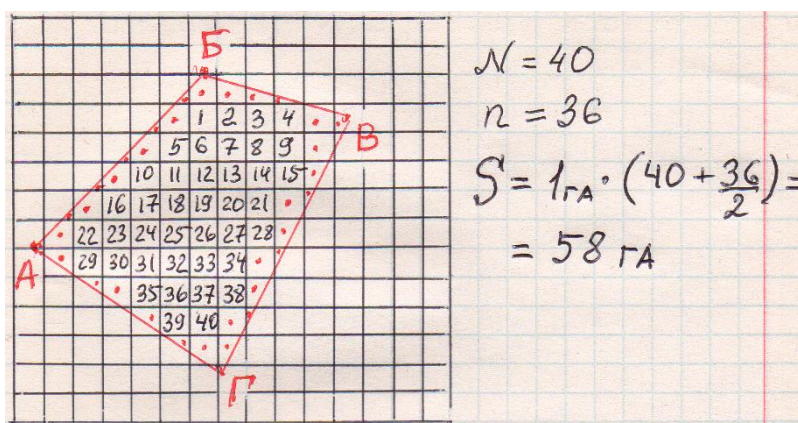 Б
1 2 3 4
В
5 6 7 8 9
10 11 12 13 14 15
16 17 18 19 20 21
22 23 24 25 26 27 28
А
29 30 31 32 33 34
35 36 37 38
39 40
Г
N = 40
n = 36
S = 1 га · (40 + 36/2) =
= 58 га